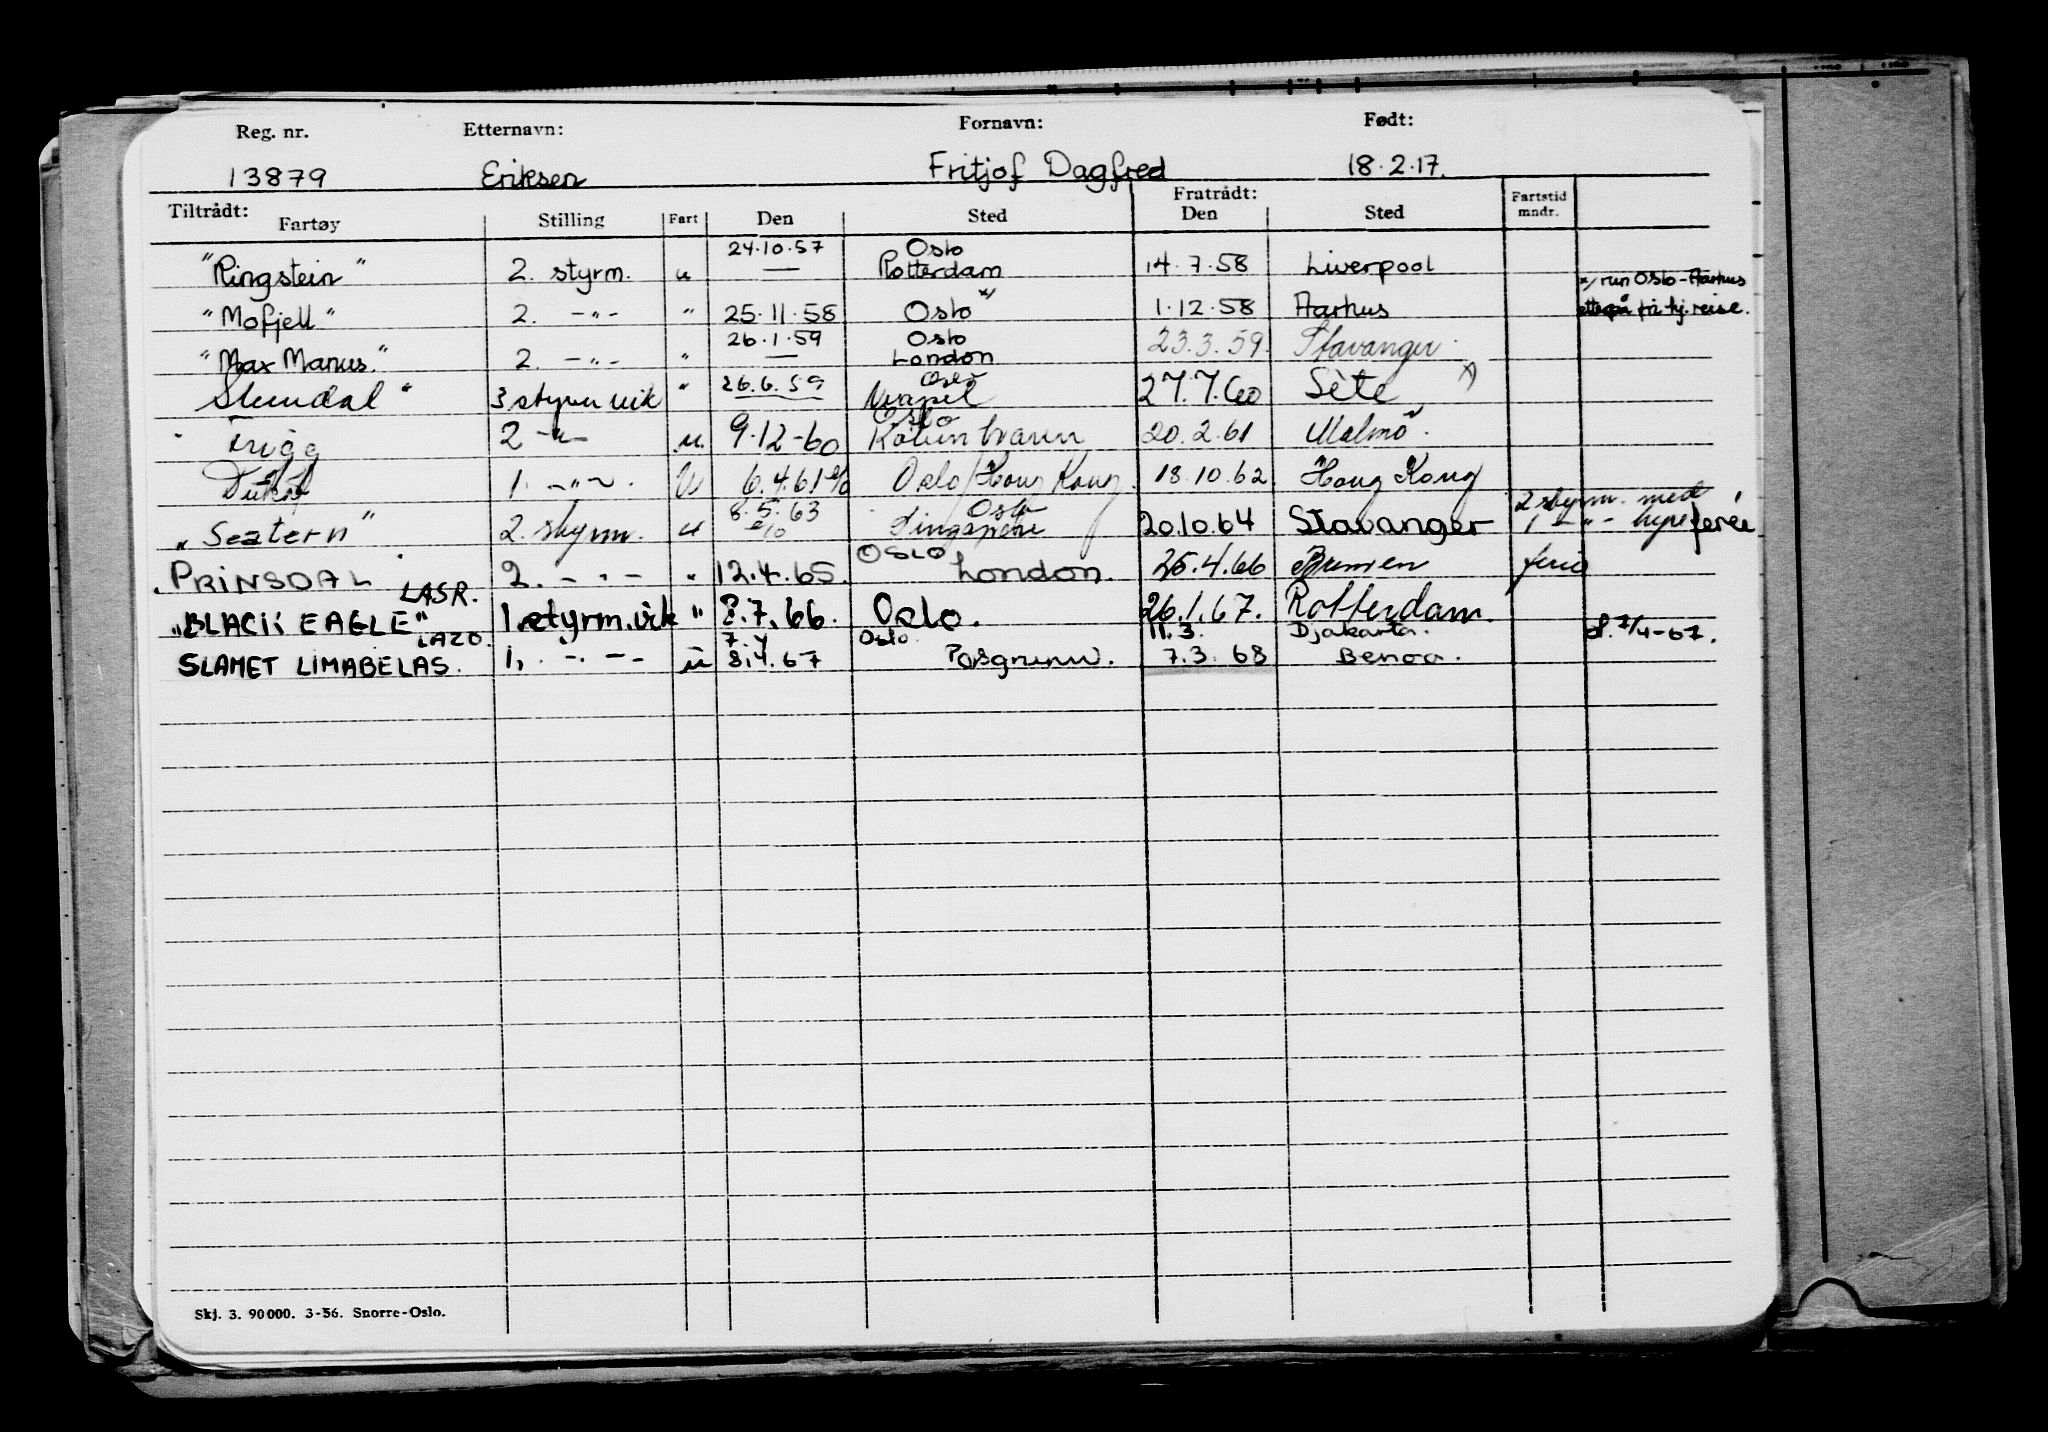 Reg. nr. Etternavn: Fornavn: Født:
13879 Eriksen Fritjof Dagfred 18.2.17.
Tiltrådt: Fratrådt: Fartstid mndr.
Fartøy Stilling Fart Den Sted Den Sted
24.10.57 Oslo
"Ringstein" 2. styrm. u — Rotterdam 14.7.58 Liverpool
x/ run Oslo-Aarhus
"Mofjell" 2. -"- " 25.11.58 Oslo x/ 1.12.58 Aarhus fri hj.reise.
26.1.59 Oslo
"Max Manus." 2. -"- " — London 23.3.59. Stavanger
26.6.59 Oslo
" 3 styrm vik " 27.7.60 Sète x)
Oslo
Trigg 2 -"- u. 9.12-60 20.2.61 Malmö
1. -"- . U 6.4.61 Oslo/Hong Kong. 18.10.62. Hong Kong
8.5.63 Oslo 2 styrm. med
"Seatern" 2. styrm. u Singapore 20.10.64 Stavanger 1 -"- hyre ferie
OSLO
PRINSDAL 2. - " - " 12.4.65. London. 25.4.66 Bremen ferie
LASR.
"BLACK EAGLE" 1.styrm.vik " 2.7.66. Oslo. 26.1.67. Rotterdam.
LAZO. 7.4 Oslo. 11.3. Djakarta. 7/4-67.
SLAMET LIMABELAS. 1. -"- u 8.4.67 Porsgrunn. 7.3.68 Benoa.
Skj. 3. 90000. 3-56. Snorre-Oslo.